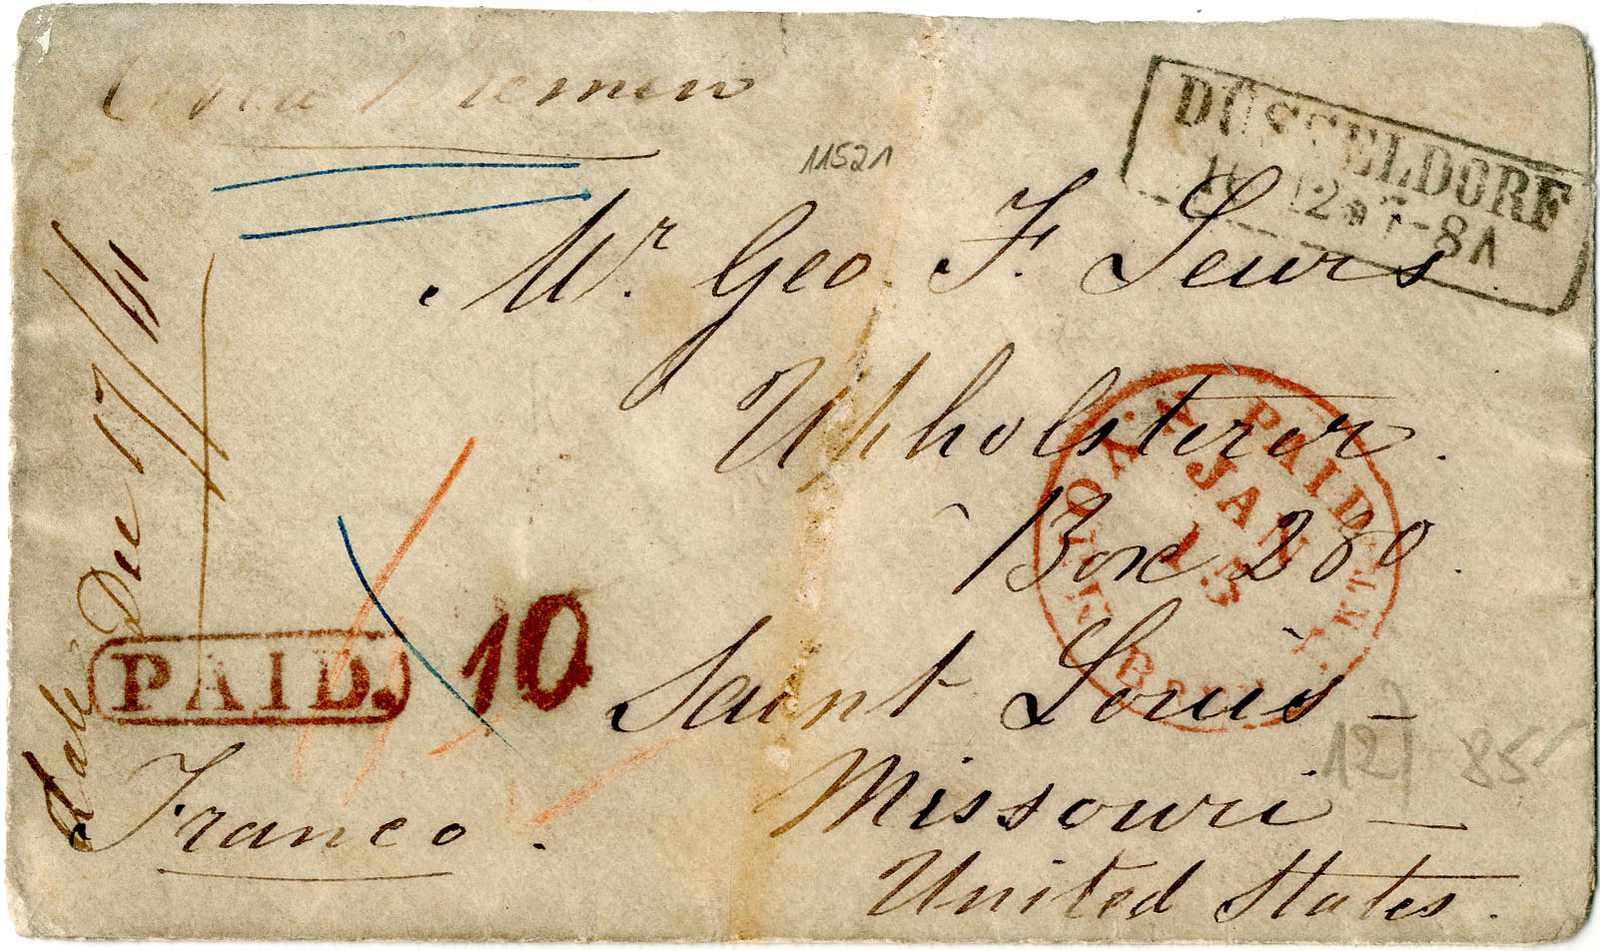 Bremen
11521
DÜSSELDORF
12 * 7-8A
Mr. Geo. F. Lewis
Upholsterer.
Box 280.
Saint Louis -
Missouri -
United States.
N. YORK BREM. PKT. PAID
JAN
15
Dec 17/
PAID.
10
Franco.
127-855